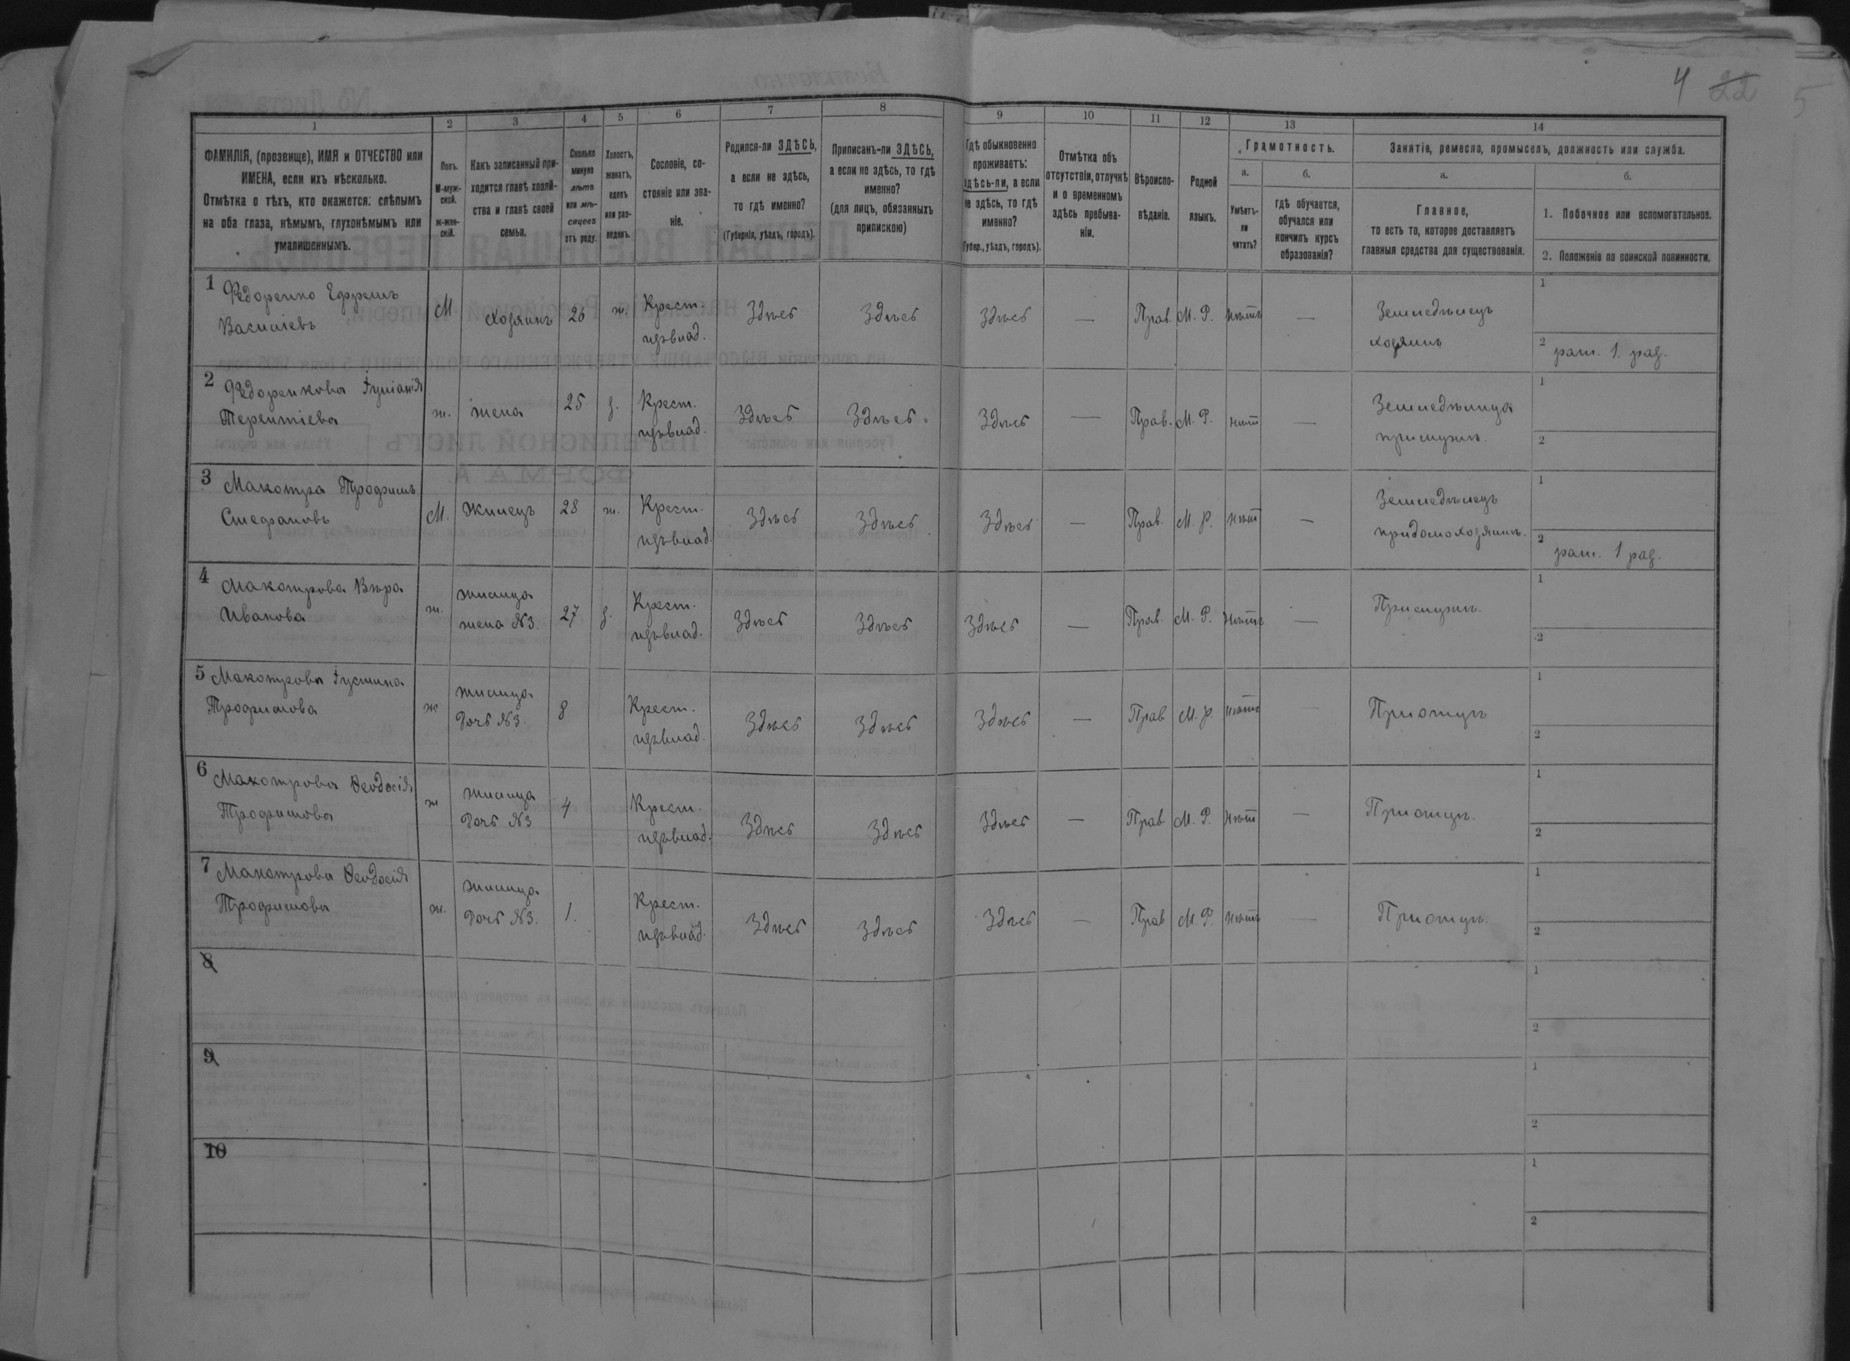 4 22 5
1 2 3 4 5 6 7 8 9 10 11 12 13 14
ФАМИЛІЯ, (прозвище), ИМЯ и ОТЧЕСТВО или
ИМЕНА, если ихъ нѣсколько.
Отмѣтка о тѣхъ, кто окажется: слѣпымъ
на оба глаза, нѣмымъ, глухонѣмымъ или
умалишеннымъ.
Полъ.
М-муж-
ской.
ж-жен-
скій.
Какъ записанный при-
ходится главѣ хозяй-
ства и главѣ своей
семьи.
Сколько
минуло
лѣтъ
или мѣ-
сяцевъ
отъ роду.
Холостъ,
женатъ,
вдовъ
или раз-
веденъ.
Сословіе, со-
стояніе или зва-
ніе.
Родился-ли ЗДѢСЬ,
а если не здѣсь,
то гдѣ именно?
(Губернія, уѣздъ, городъ).
Приписанъ-ли ЗДѢСЬ,
а если не здѣсь, то гдѣ
именно?
(для лицъ, обязанныхъ
припискою)
Гдѣ обыкновенно
проживаетъ:
здѣсь-ли, а если
не здѣсь, то гдѣ
именно?
(Губер., уѣздъ, городъ).
Отмѣтка объ
отсутствіи, отлучкѣ
и о временномъ
здѣсь пребыва-
ніи.
Вѣроиспо-
вѣданіе.
Родной
языкъ.
Грамотность.
а.
Умѣетъ-
ли
читать?
б.
гдѣ обучается,
обучался или
кончилъ курсъ
образованія?
Занятіе, ремесло, промыселъ, должность или служба.
а.
Главное,
то есть то, которое доставляетъ
главныя средства для существованія.
б.
1. Побочное или вспомогательное.
2. Положеніе по воинской повинности.
1 Федоренко Ефремъ
Василіевъ
М Хозяинъ 26 ж. Крест.
изъ влад.
Здѣсь Здѣсь Здѣсь — Прав. М. Р. нѣтъ — Земледѣлецъ
хозяинъ
1
2 рат. 1. раз.
2 Федоренкова
Терентіева
ж. жена 25 з. Крест.
изъ влад.
Здѣсь Здѣсь Здѣсь — Прав. М. Р. нѣт — Земледѣлица
прислужн.
1
2
3 Макотра Трофимъ
Стефановъ
М. Жилецъ 28 ж. Крест.
изъ влад.
Здѣсь Здѣсь Здѣсь — Прав. М. Р. нѣт — Земледѣлецъ
придомохозяинъ.
1
2 рат. 1 раз.
4 Макотрова Вѣра
Иванова
ж. жилица
жена №3. 27 з. Крест.
изъ влад.
Здѣсь Здѣсь Здѣсь — Прав. М. Р. Нѣтъ — Прислужн.
1
2
5 Макотрова Іустина
Трофимова
ж жилица
дочь №3. 8 Крест.
изъ влад.
Здѣсь Здѣсь Здѣсь — Прав М. Р. нѣтъ — При отцѣ
1
2
6 Макотрова Ѳеодосія
Трофимова
ж жилица
дочь №3 4 Крест.
изъ влад.
Здѣсь Здѣсь Здѣсь — Прав М. Р. Нѣт — При отцѣ.
1
2
7 Макотрова Ѳеодосія
Трофимова
ж. жилица
дочь №3. 1. Крест.
изъ влад.
Здѣсь Здѣсь Здѣсь — Прав М. Р. нѣтъ — При отцѣ.
1
2
8
1
2
9
1
2
10
1
2